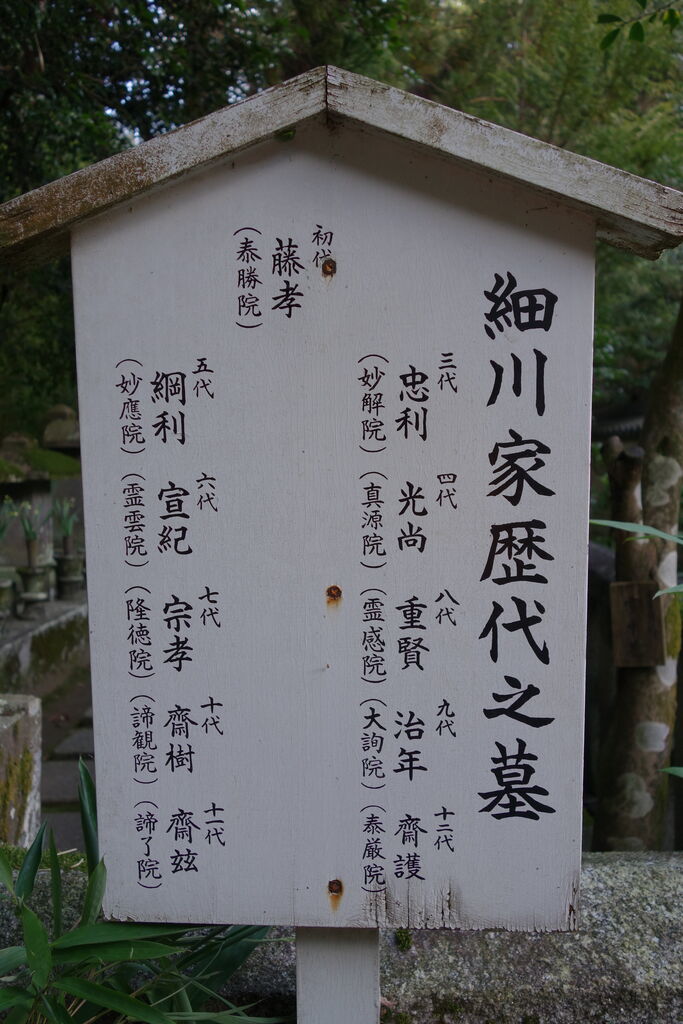 細川家歴代之墓
初代
藤孝
（泰勝院）
三代 四代 八代 九代 十二代
忠利 光尚 重賢 治年 齋護
（妙解院）（真源院）（霊感院）（大詢院）（泰厳院）
五代 六代 七代 十代 十一代
綱利 宣紀 宗孝 齋樹 齋玆
（妙應院）（霊雲院）（隆徳院）（諦観院）（諦了院）